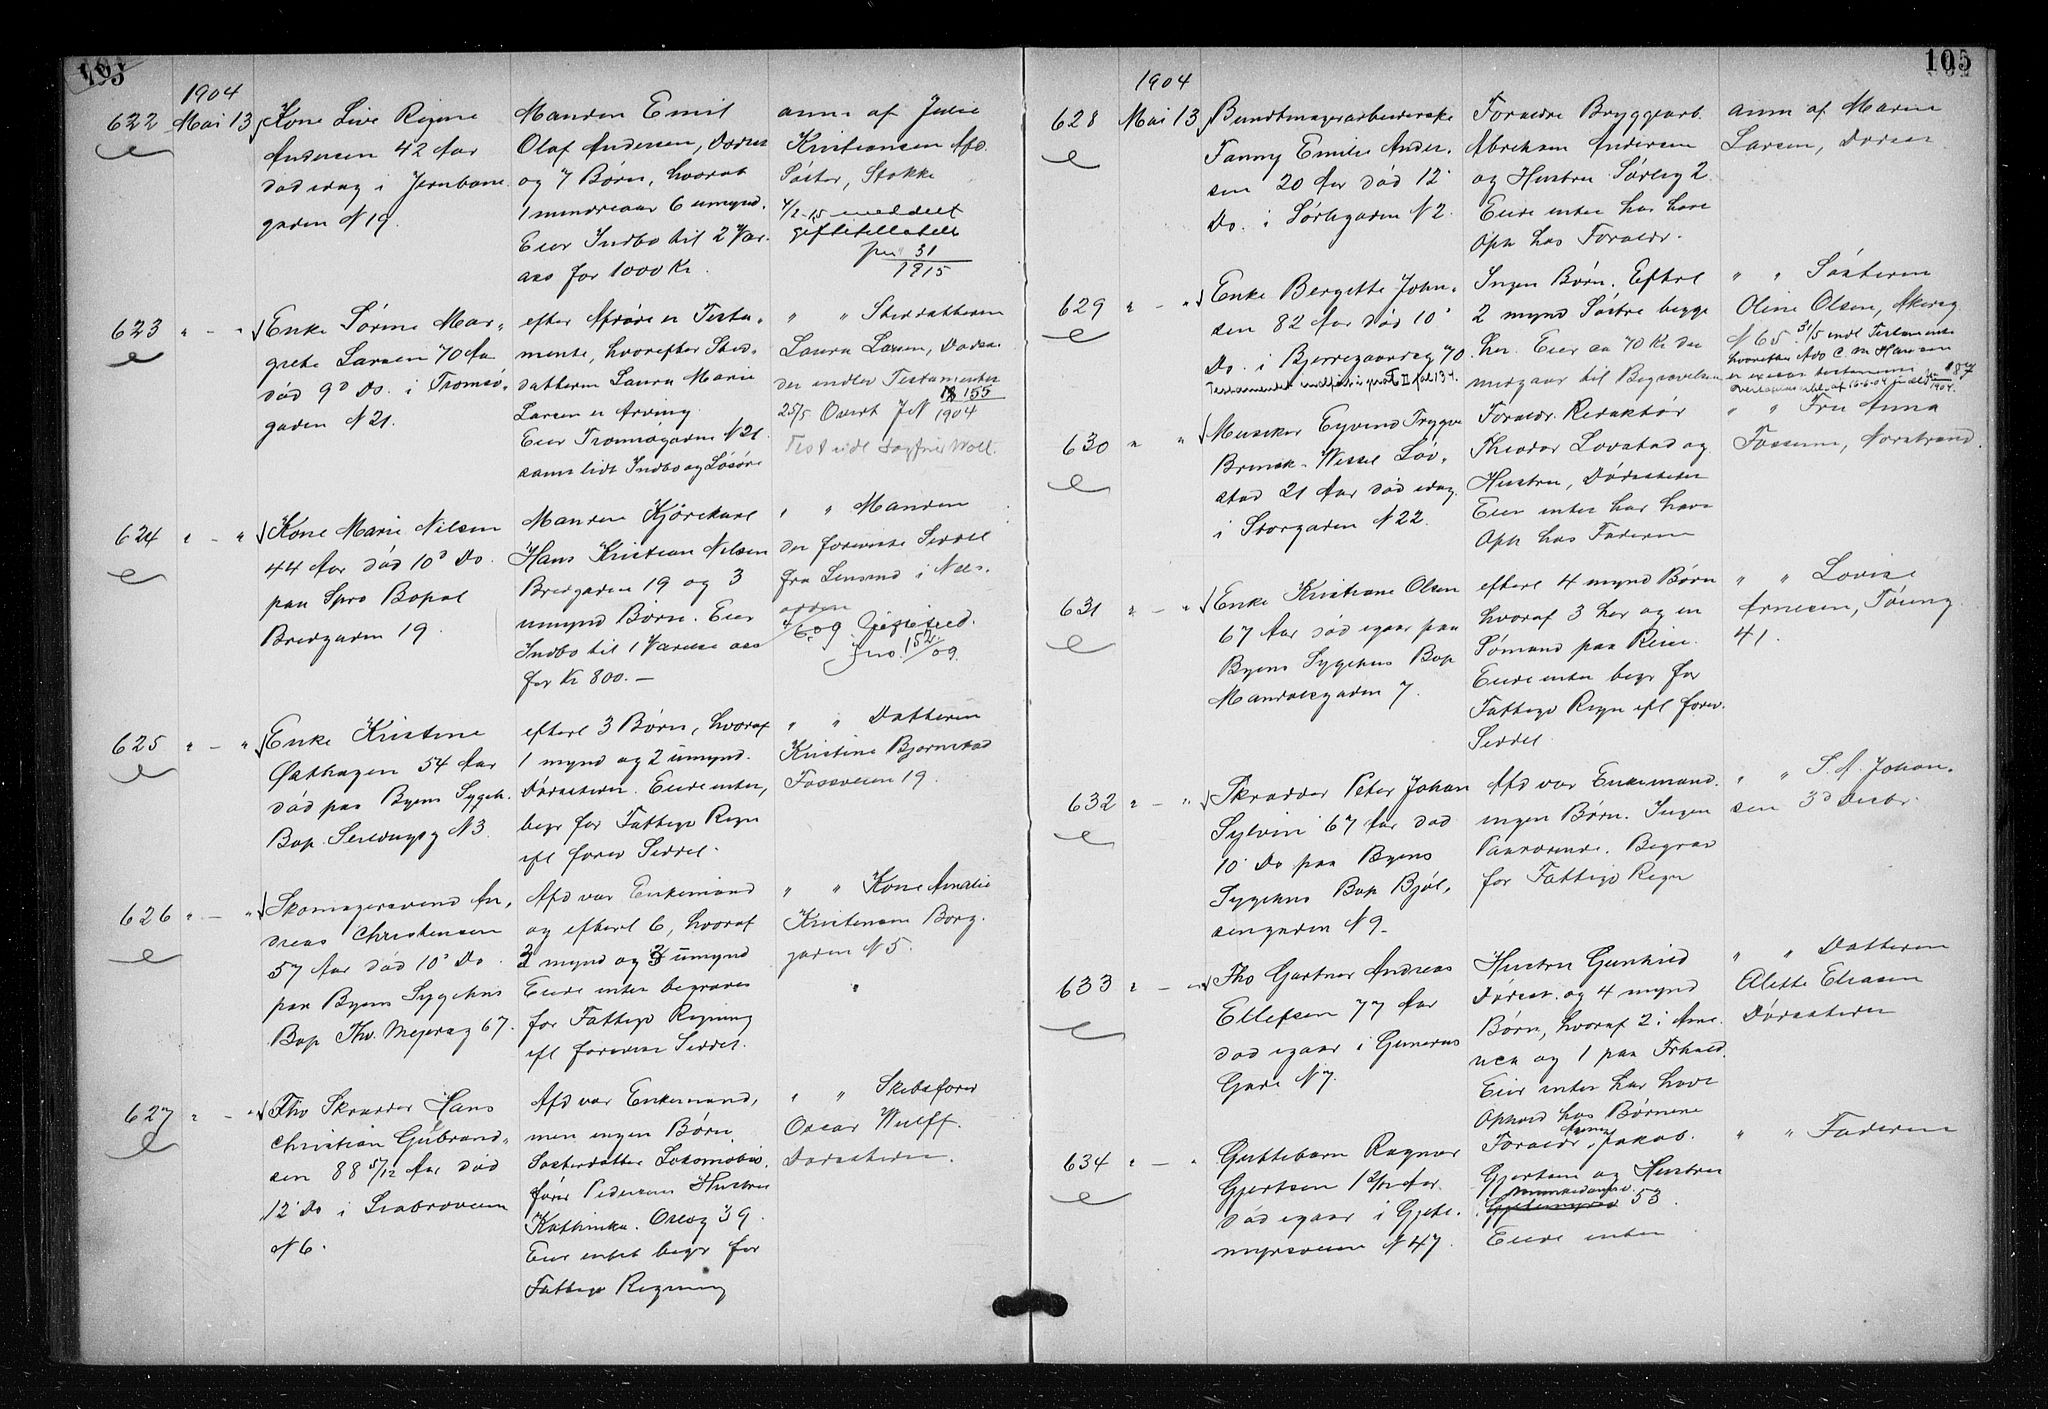 105
1904
622 Mai 13 Kone Live Regine
Andersen 42 Aar
død idag i Jernbane
gaden N 19.
Manden Emil
Olaf Andersen, Dødsst
og 7 Børn, hvoraf
1 mindreaar 6 umynd.
Eier Indbo til 2 Vær.
ass for 1000 Kr.
anm af Julie
Kristiansen Afd.
Søster, Stokke
4/2-15 meldelt
giftetilladelse
31
1915
623 " - " Enke Sørine Mar-
grete Larsen 70 Aar
død 9d Ds. i Tromsø-
gaden N 21.
efter Afdøde er Testa-
mente, hvorefter Sted-
datteren Laura Marie
Larsen er Arving.
Eier Tromsøgaden N 21
samt lidt Indbo og Løsøre
" " Steddatteren
Laura Larsen, Dødsst.
der indlev Testamentet
25/5 Overt J N 155
1904
624 " - " Kone Marie Nilsen
44 Aar død 10d Ds.
paa Spro Bopæl
Bredgaden 19.
Manden Kjørekarl
Hans Kristian Nilsen
Bredgaden 19 og 3
umynd Børn. Eier
Indbo til 1 Værelse ass
for Kr 800.-
" " Manden
der foreviste Seddel
fra Lensmd i Nes-
odden
4/6.09
Jno. 152/09.
625 " - " Enke Kristine
Østhagen 54 Aar
død paa Byens Sygeh.
Bop. Seilduggs g N 3.
efterl 3 Børn, hvoraf
1 mynd og 2 umynd.
Dødsstedet. Eiede intet,
begr for Fattigv Regn
ifl forev Seddel.
" " Datteren
Kristine Bjørnstad
Fossveien 19.
626 " - " Skomagersvend An-
dreas Christensen
57 Aar død 10d Ds
paa Byens Sygehus
Bop Thv. Meyers g 67.
Afd var Enkemand
og efterl 6, hvoraf
3 mynd og 3 umynd
Eiede intet begraves
for Fattigv Regning
ifl forevist Seddel.
" " Kone Amalie
Kristensen Borg-
gaden N 5.
627 " - " Fhv Skrædder Hans
Christian Gulbrand-
sen 88 5/12 Aar død
12' Ds i Ljabroveien
N 6.
Afd var Enkemand,
men ingen Børn
Søsterdatter Lokomotiv-
fører Pedersens Hustru
Kathinka. Oscsg 39.
Eier intet begr for
Fattigv Regning
" " Skibsfører
Oscar Wulff.
Dødsstedet.
105
1904
628 Mai 13 Bundtmagerarbeiderske
Fanny Emilie Ander-
sen 20 Aar død 12'
Ds. i Sørligaden N 2.
Forældre Bryggearb.
Abraham Andersen
og Hustru Sørlig 2.
Eiede intet har havt
Oph hos Forældr.
anm af Maren
Larsen, Dødsst
629 " - " Enke Bergitte John-
sen 82 Aar død 10'
Ds. i Bjerregaardsg 70.
Ingen Børn. Efterl
2 mynd Søstre begge
her. Eier ca 70 Kr der
medgaar til Begravelsen
" " Søsteren
Oline Olsen, Akersg
N 65. 31/5 indl Testamente
hvorefter Adv C. M Hansen
er exekutor testamenti
1904.
630 " " Musiker Eyvind Trygve
Brinck-Wessel Løv-
stad 21 Aar død idag
i Storgaden N 22.
Forældr. Redaktør
Theodor Lovstad og
Hustru, Dødsstedet
Eier intet har havt
Oph hos Faderen
" " Fru Anna
Fossum, Norstrand.
631 " - " Enke Kristiane Olsen
67 Aar død igaar paa
Byens Sygehus Bop
Mandalsgaden 7.
efterl 4 mynd Børn
hvoraf 3 her og en
Sømand paa Reise.
Eiede intet begr for
Fattigv Regn ifl forev.
Seddel
" " Lovise
Arnesen, Tøieng
41.
632 " - " Skrædder Peter Johan
Sylvin 67 Aar død
10' Ds paa Byens
Sygehus Bop Bjøl-
sengaden N 9.
Afd var Enkemand.
ingen Børn. Ingen
Paarørende. Begrav
for Fattigv Regn
" " S. A. Johan-
sen 3d Distr.
633 " - " Fhv Gartner Andreas
Ellefsen 77 Aar
død igaar i Gunerus
Gade N 7.
Hustru Gunhild
Dødsst. og 4 mynd
Børn, hvoraf 2 i Ame-
rica og 1 paa Frhald.
Eier intet har havt
Ophold hos Børnene
" " Datteren
Alette Eliasen
Dødsstedet
634 " - " Guttebarn Ragnar
Gjertsen 1 2/12 Aar
død igaar i Gjete-
myrsveien N 47.
Forældr. Jakob.
Gjertsen og Hustru
Munkedamsv. 53.
Eiede intet
" " Faderen